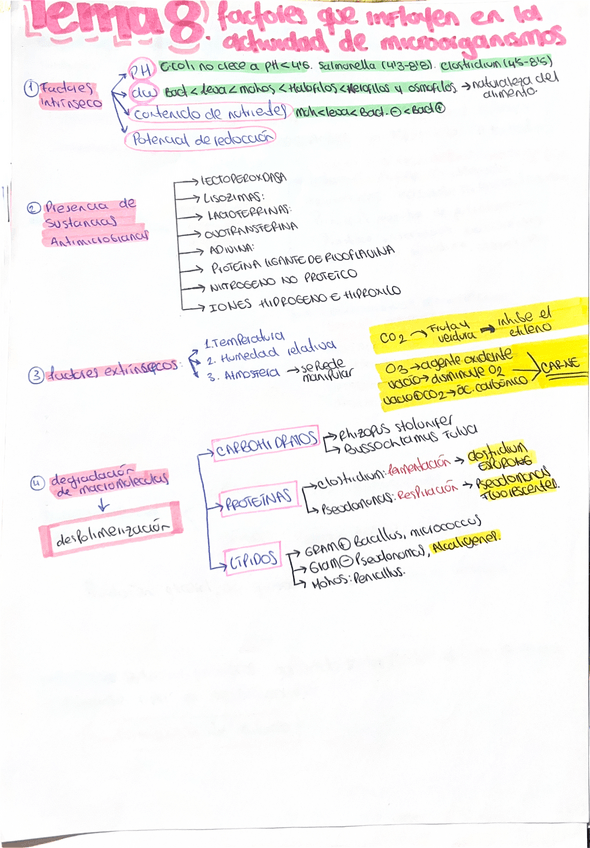 Tema 8: factores que influyen en la
actividad de microorganismos
① Factores intrínseco
PH E.coli no crece a PH<4'6. Salmonella (4'3-8'8). Clostridium (4'5-8'5)
aw Bact < leva < mohos < Halofilos < Xerofilos y osmofilos → naturaleza del alimento.
contenido de nutrietes moh<leva<Bact ⊖ <Bact ⊕
Potencial de redocción
② Presencia de
sustancias
Antimicrobianas
→ LECTOPEROXDASA
→ LISOZIMAS:
→ LACTOTERRINAS:
→ OVOTRANSFERINA
→ ADIVINA:
→ PROTEÍNA LIGANTE DE RIVOFLAVINA
→ NITROGENO NO PROTEICO
→ IONES HIDROGENO E HIDROXILO
③ factores extrínsecos:
1. Temperatura
2. Humedad relativa
3. Atmosfera → se puede manipular
CO2 → Fruta y verdura → inhibe el etileno
O3 → agente oxidante
vacío → disminuye O2
vacío ⊕ CO2 → ác. carbónico
CARNE
④ degradación
de macromoleculas
despolimerización
CARBOHIDRATOS
→ Rhizopus stolonifer
→ Byssochlamus Fulva
PROTEÍNAS
→ Clostridium: Fermentación → clostridium
→ Pseudomonas: Respiración → Pseudomonas Fluorescentes.
LÍPIDOS
→ GRAM ⊕ Bacillus, micrococcus
→ Gram ⊖ Pseudomonas, Alcaligenes.
→ Mohos: Penicillus.